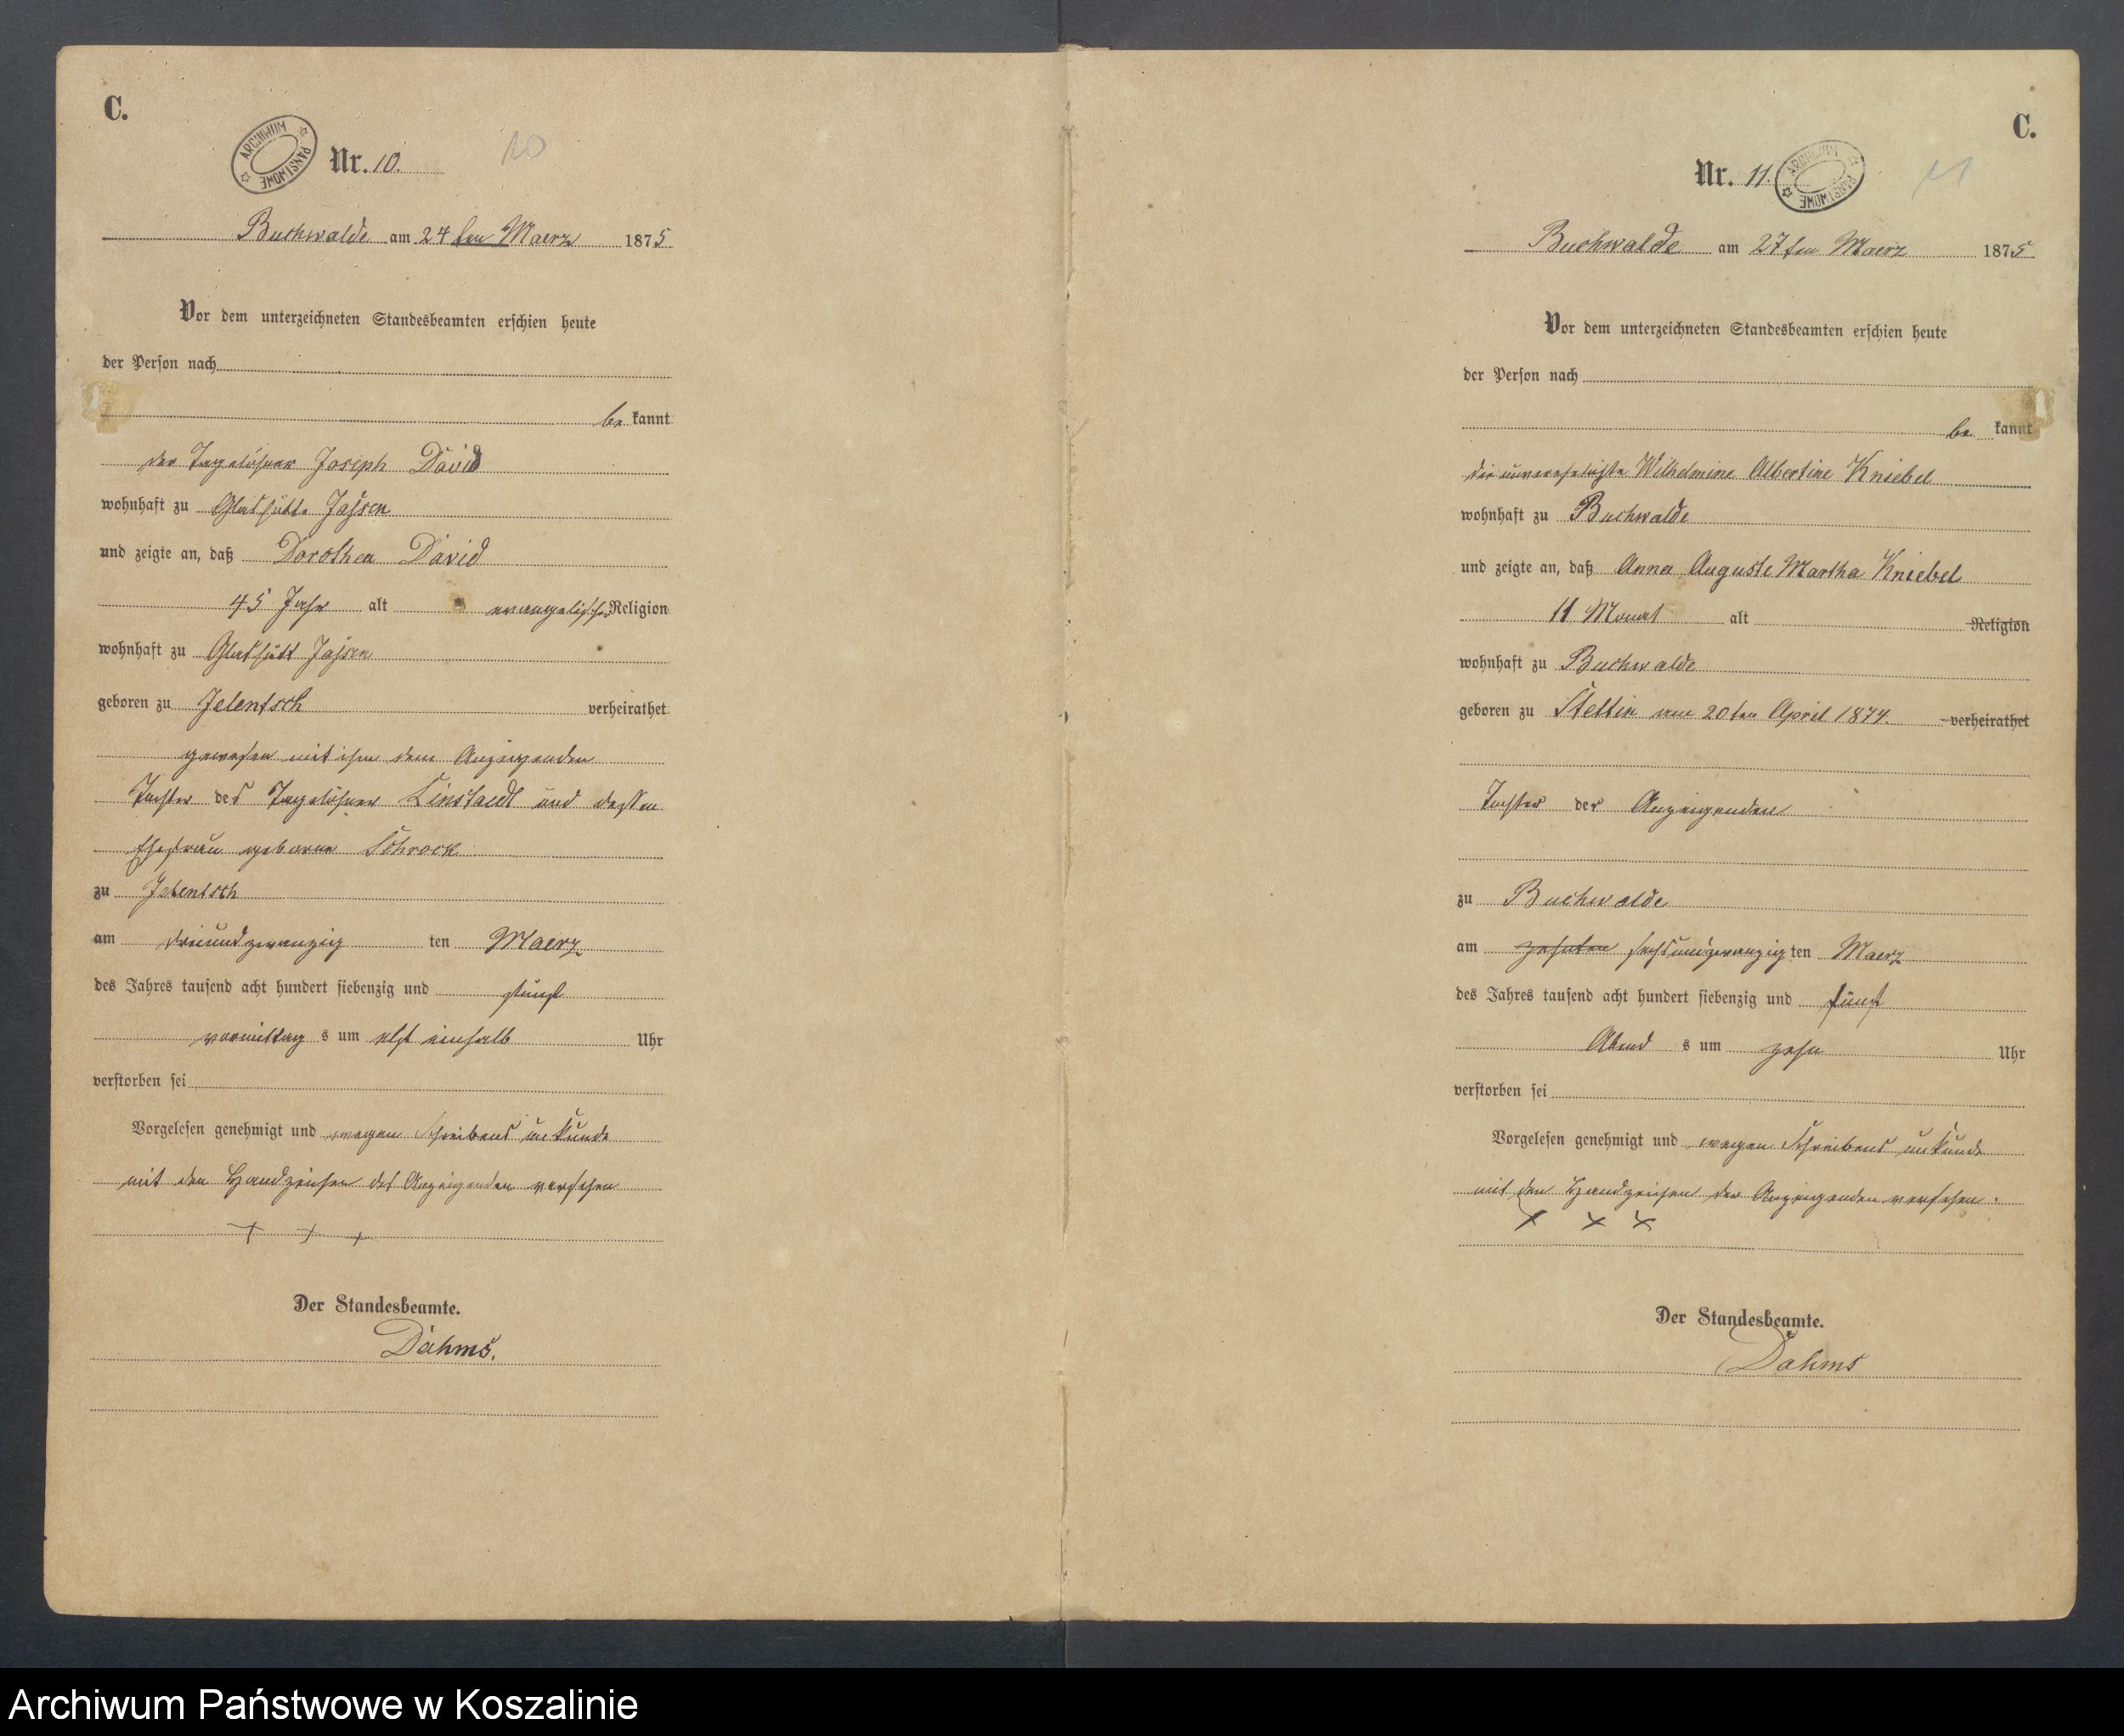 C.
ARCHIWUM PAŃSTWOWE
Nr. 10.
10
Buchwalde am 24ten Maerz 1875
Vor dem unterzeichneten Standesbeamten erschien heute
der Person nach
be kannt
der Tagelöhner Joseph David
wohnhaft zu Glashütte Jassen
und zeigte an, daß Dorothea David
45 Jahr alt evangelischer Religion
wohnhaft zu Glashütte Jassen
geboren zu Jelentsch verheirathet
gewesen mit ihm dem Anzeigenden
Tochter des Tagelöhner Linstaedt und dessen
Ehefrau geborne Schrock
zu Jelentsch
am dreiundzwanzig ten Maerz
des Jahres tausend acht hundert siebenzig und fünf
vormittag s um elf einhalb Uhr
verstorben sei
Vorgelesen genehmigt und wegen Schreibens unkunde
mit den Handzeichen des Anzeigenden versehen
+ + +
Der Standesbeamte.
Dahms.
C.
Nr. 11.
ARCHIWUM PAŃSTWOWE
11
Buchwalde am 27ten Maerz 1875
Vor dem unterzeichneten Standesbeamten erschien heute
der Person nach
be kannt
die unverehelichte Wilhelmine Albertine Kniebel
wohnhaft zu Buchwalde
und zeigte an, daß Anna Auguste Martha Kniebel
11 Monat alt Religion
wohnhaft zu Buchwalde
geboren zu Stettin am 20ten April 1874 verheirathet
Tochter der Anzeigenden
zu Buchwalde
am zehnten sechsundzwanzig ten Maerz
des Jahres tausend acht hundert siebenzig und fünf
Abend s um zehn Uhr
verstorben sei
Vorgelesen genehmigt und wegen Schreibens unkunde
mit den Handzeichen der Anzeigenden versehen.
+ + +
Der Standesbeamte.
Dahms
Archiwum Państwowe w Koszalinie